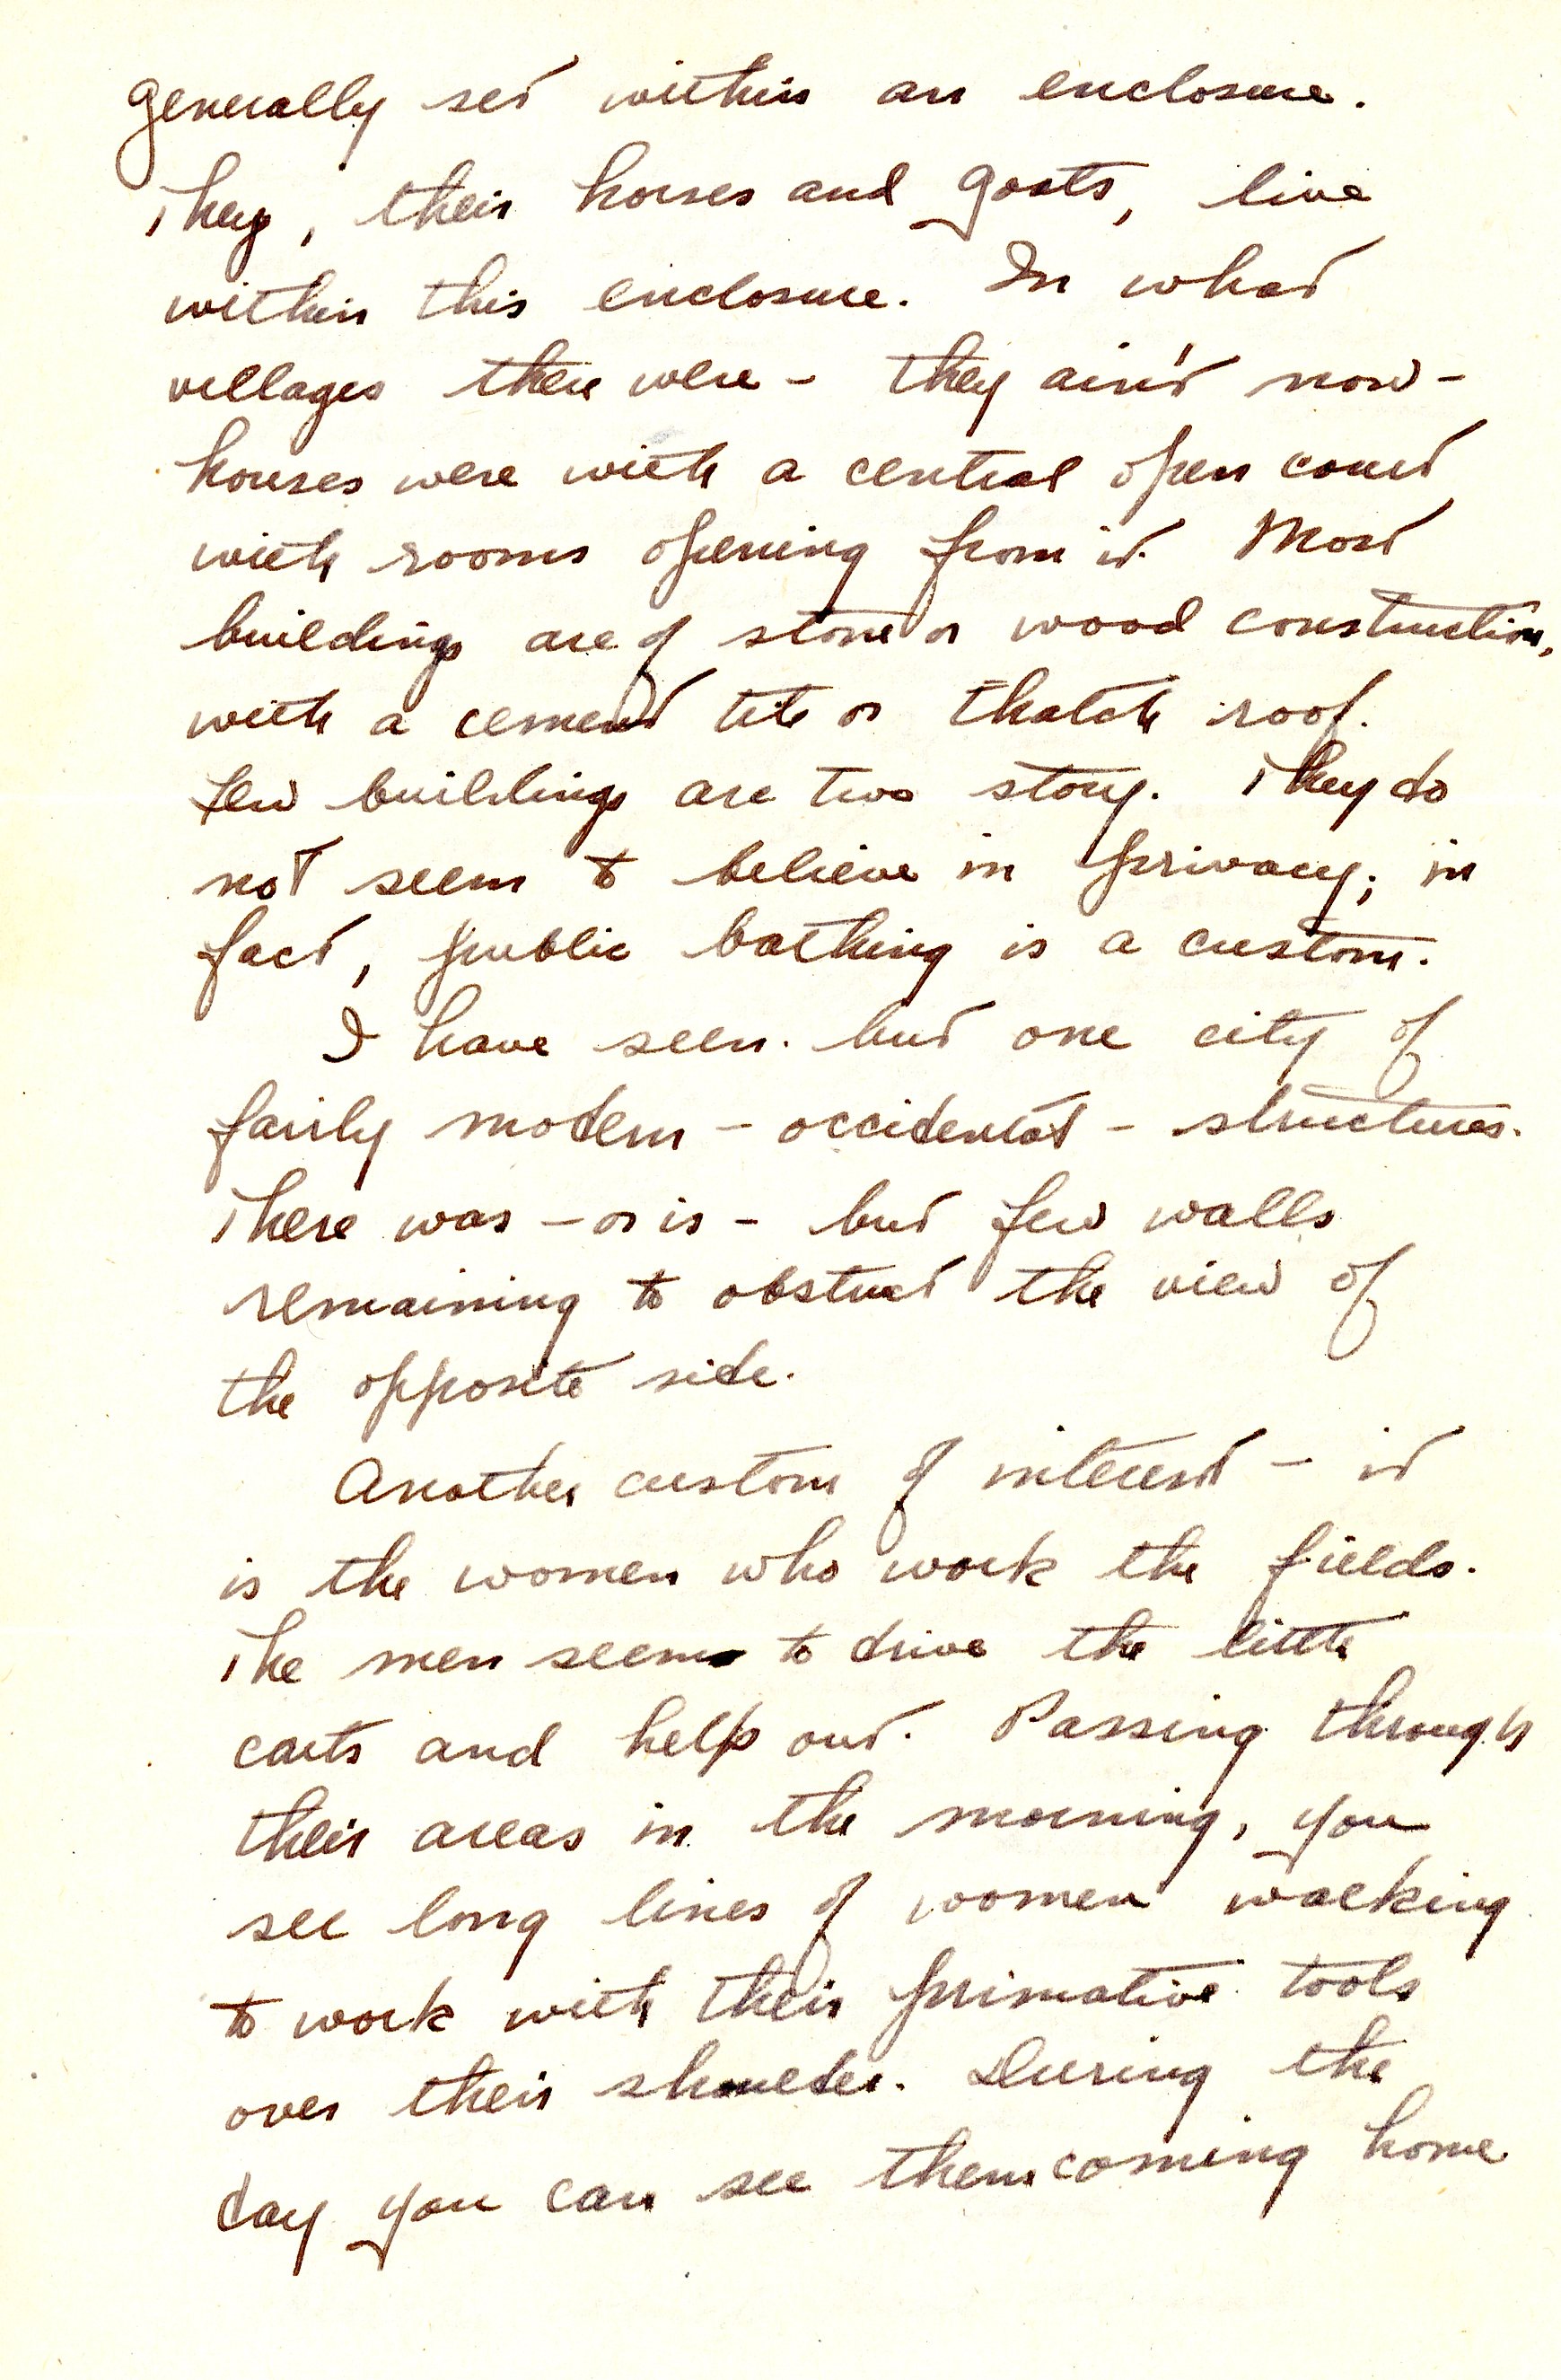 generally set within an enclosure.
They, their horses and goats, live
within this enclosure. In what
villages there were - they ain't now -
houses were with a central open court
with rooms opening from it. Most
buildings are of stone or wood construction,
with a cement tile or thatch roof.
Few buildings are two story. They do
not seem to believe in privacy; in
fact, public bathing is a custom.
I have seen but one city of
fairly modern - occidental - structures.
There was - or is - but few walls
remaining to obstruct the view of
the opposite side.
Another custom of interest - it
is the women who work the fields.
The men seem to drive the little
carts and help out. Passing through
their areas in the morning, you
see long lines of women walking
to work with their primative tools
over their shoulder. During the
day you can see them coming home